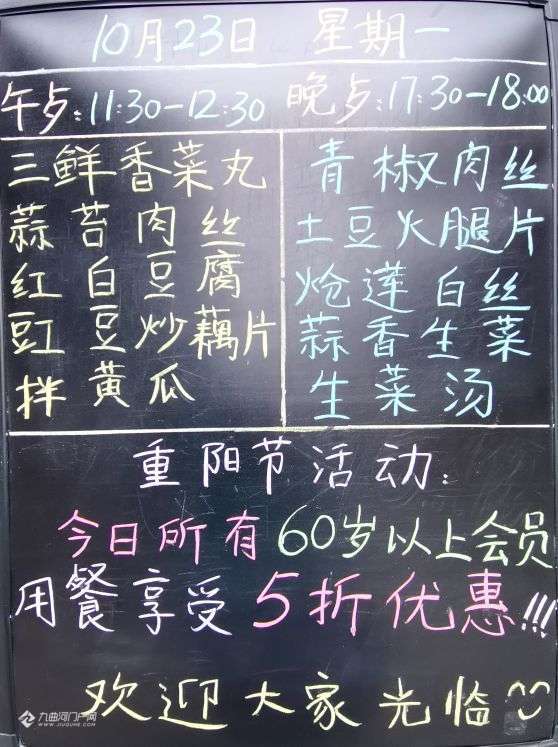 10月23日 星期一
午歺:11:30-12:30
晚歺:17:30-18:00
三鲜香菜丸
蒜苔肉丝
红白豆腐
豇豆炒藕片
拌黄瓜
青椒肉丝
土豆火腿片
炝莲白丝
蒜香生菜
生菜汤
重阳节活动:
今日所有60岁以上会员
用餐享受5折优惠!!!
欢迎大家光临
九曲河门户网
WWW.JIUQUHE.COM